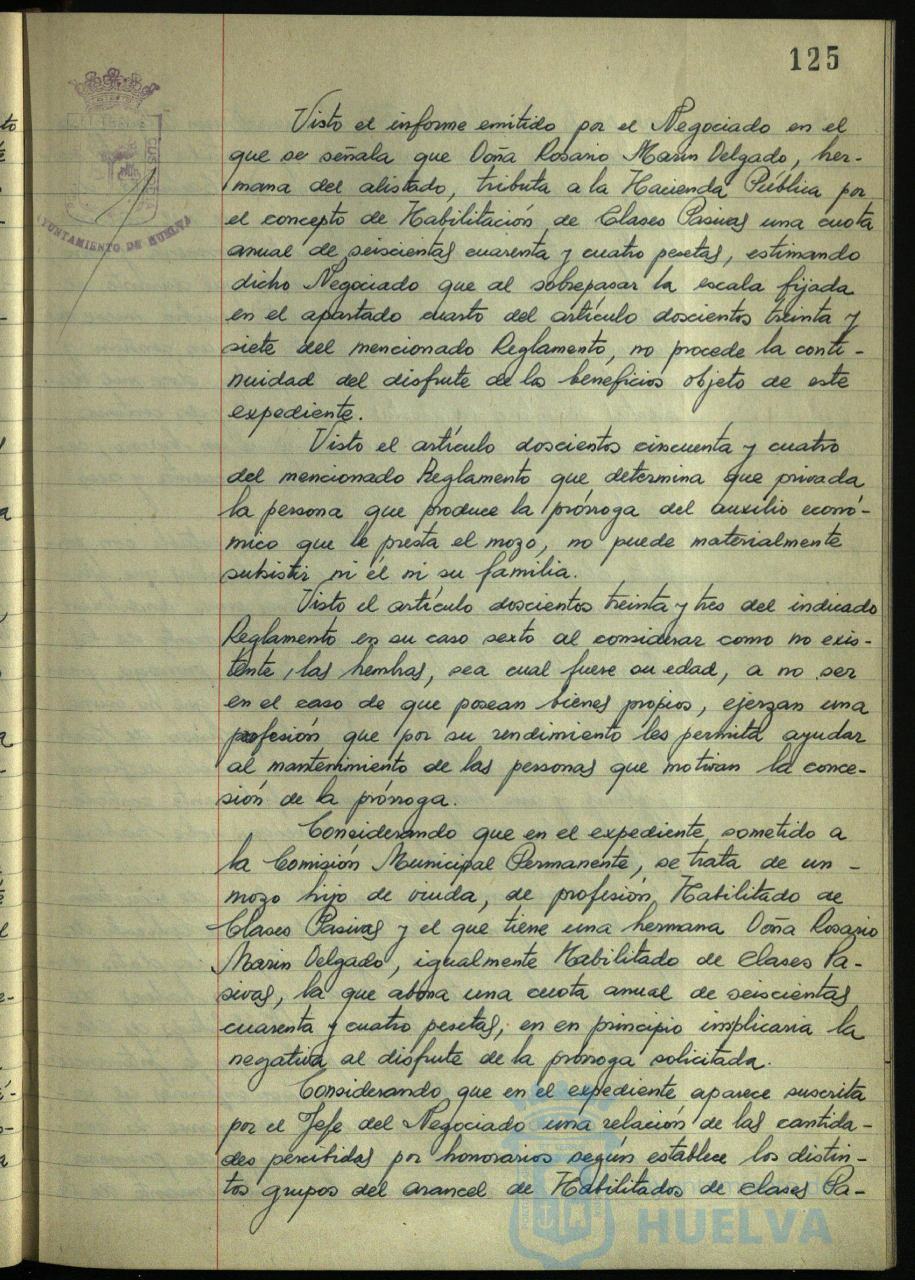 125
Visto el informe emitido por el Negociado en el
que se señala que Doña Rosario Marin Delgado, her-
mana del alistado, tributa a la Hacienda Pública por
el concepto de Habilitación de Clases Pasivas una cuota
anual de seiscientas cuarenta y cuatro pesetas, estimando
dicho Negociado que al sobrepasar la escala fijada
en el apartado cuarto del artículo doscientos treinta y
siete del mencionado Reglamento, no procede la conti-
nuidad del disfrute de los beneficios objeto de este
expediente.
Visto el artículo doscientos cincuenta y cuatro
del mencionado Reglamento que determina que privada
la persona que produce la prórroga del auxilio econó-
mico que le presta el mozo, no puede materialmente
subsistir ni él ni su familia.
Visto el artículo doscientos treinta y tres del indicado
Reglamento en su caso sexto al considerar como no exis-
tente, las hembras, sea cual fuere su edad, a no ser
en el caso de que posean bienes propios, ejerzan una
profesión que por su rendimiento les permita ayudar
al mantenimiento de las personas que motivan la conce-
sión de la prórroga.
Considerando que en el expediente sometido a
la Comisión Municipal Permanente, se trata de un -
mozo hijo de viuda, de profesión Habilitado de
Clases Pasivas y el que tiene una hermana Doña Rosario
Marin Delgado, igualmente Habilitado de Clases Pa-
sivas, la que abona una cuota anual de seiscientas
cuarenta y cuatro pesetas, en en principio implicaria la
negativa al disfrute de la prórroga solicitada.
Considerando que en el expediente aparece suscrita
por el Jefe del Negociado una relación de las cantida-
des percibidas por honorarios según establece los distin-
tos grupos del arancel de Habilitados de Clases Pa-
AYUNTAMIENTO DE HUELVA
HUELVA